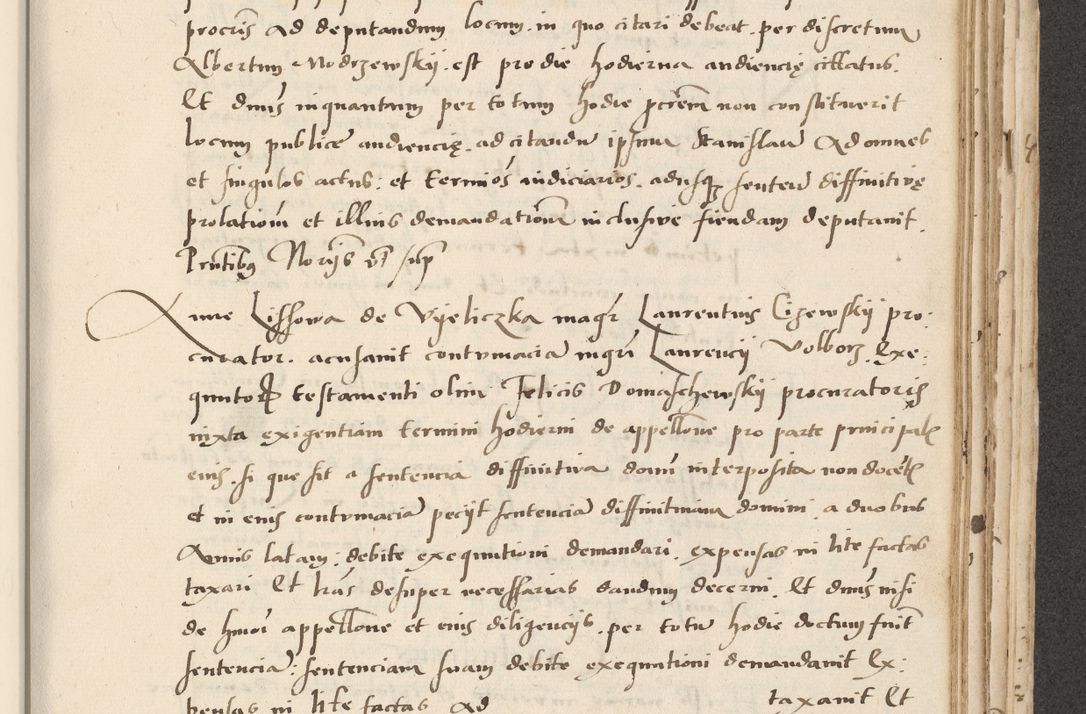 procuris ad deputandum locum in quo citari debeat per discretum
Albertum Modrzewskij est pro die hodierna audiencię cittatus.
Et dnus inquantum per totum hodie pcrem non constituerit
locum publice audiencię ad citandu ipsum Stanislau Ad omnes
et singulos actus et terminos iudiciarios, adusq senten diffinitivę
prolationem et illius demandationem inclusive fiendam deputavit.
Pntibus Norijs vt sup
Anne Lissowa de Vyeliczka magr Laurentius Cizewskij pro:
curator. acusavit contumacia mgri Laurencij Volborz. Exe:
qutor testamenti olim Felicis Domaschewskij procuratoris
iuxta exigentiam termini hodierni de appellone pro parte principal
eius, si que sit a sentencia diffinitiva dom interposita non docen
et in eius contumacia peciit sentencia diffinitivam domini a duobus
Annis latam, debite exequutioni demandari, expensas in lite factas
taxari Et lras desuper necessarias dandum decerni, Et dnus nisi
de hmoi appellone et eius diligencijs per totu hodie doctum fuit
sentencia: sentenciam suam debite exequutioni demandavit Ex:
pensas in lite factas Ad taxavit Et